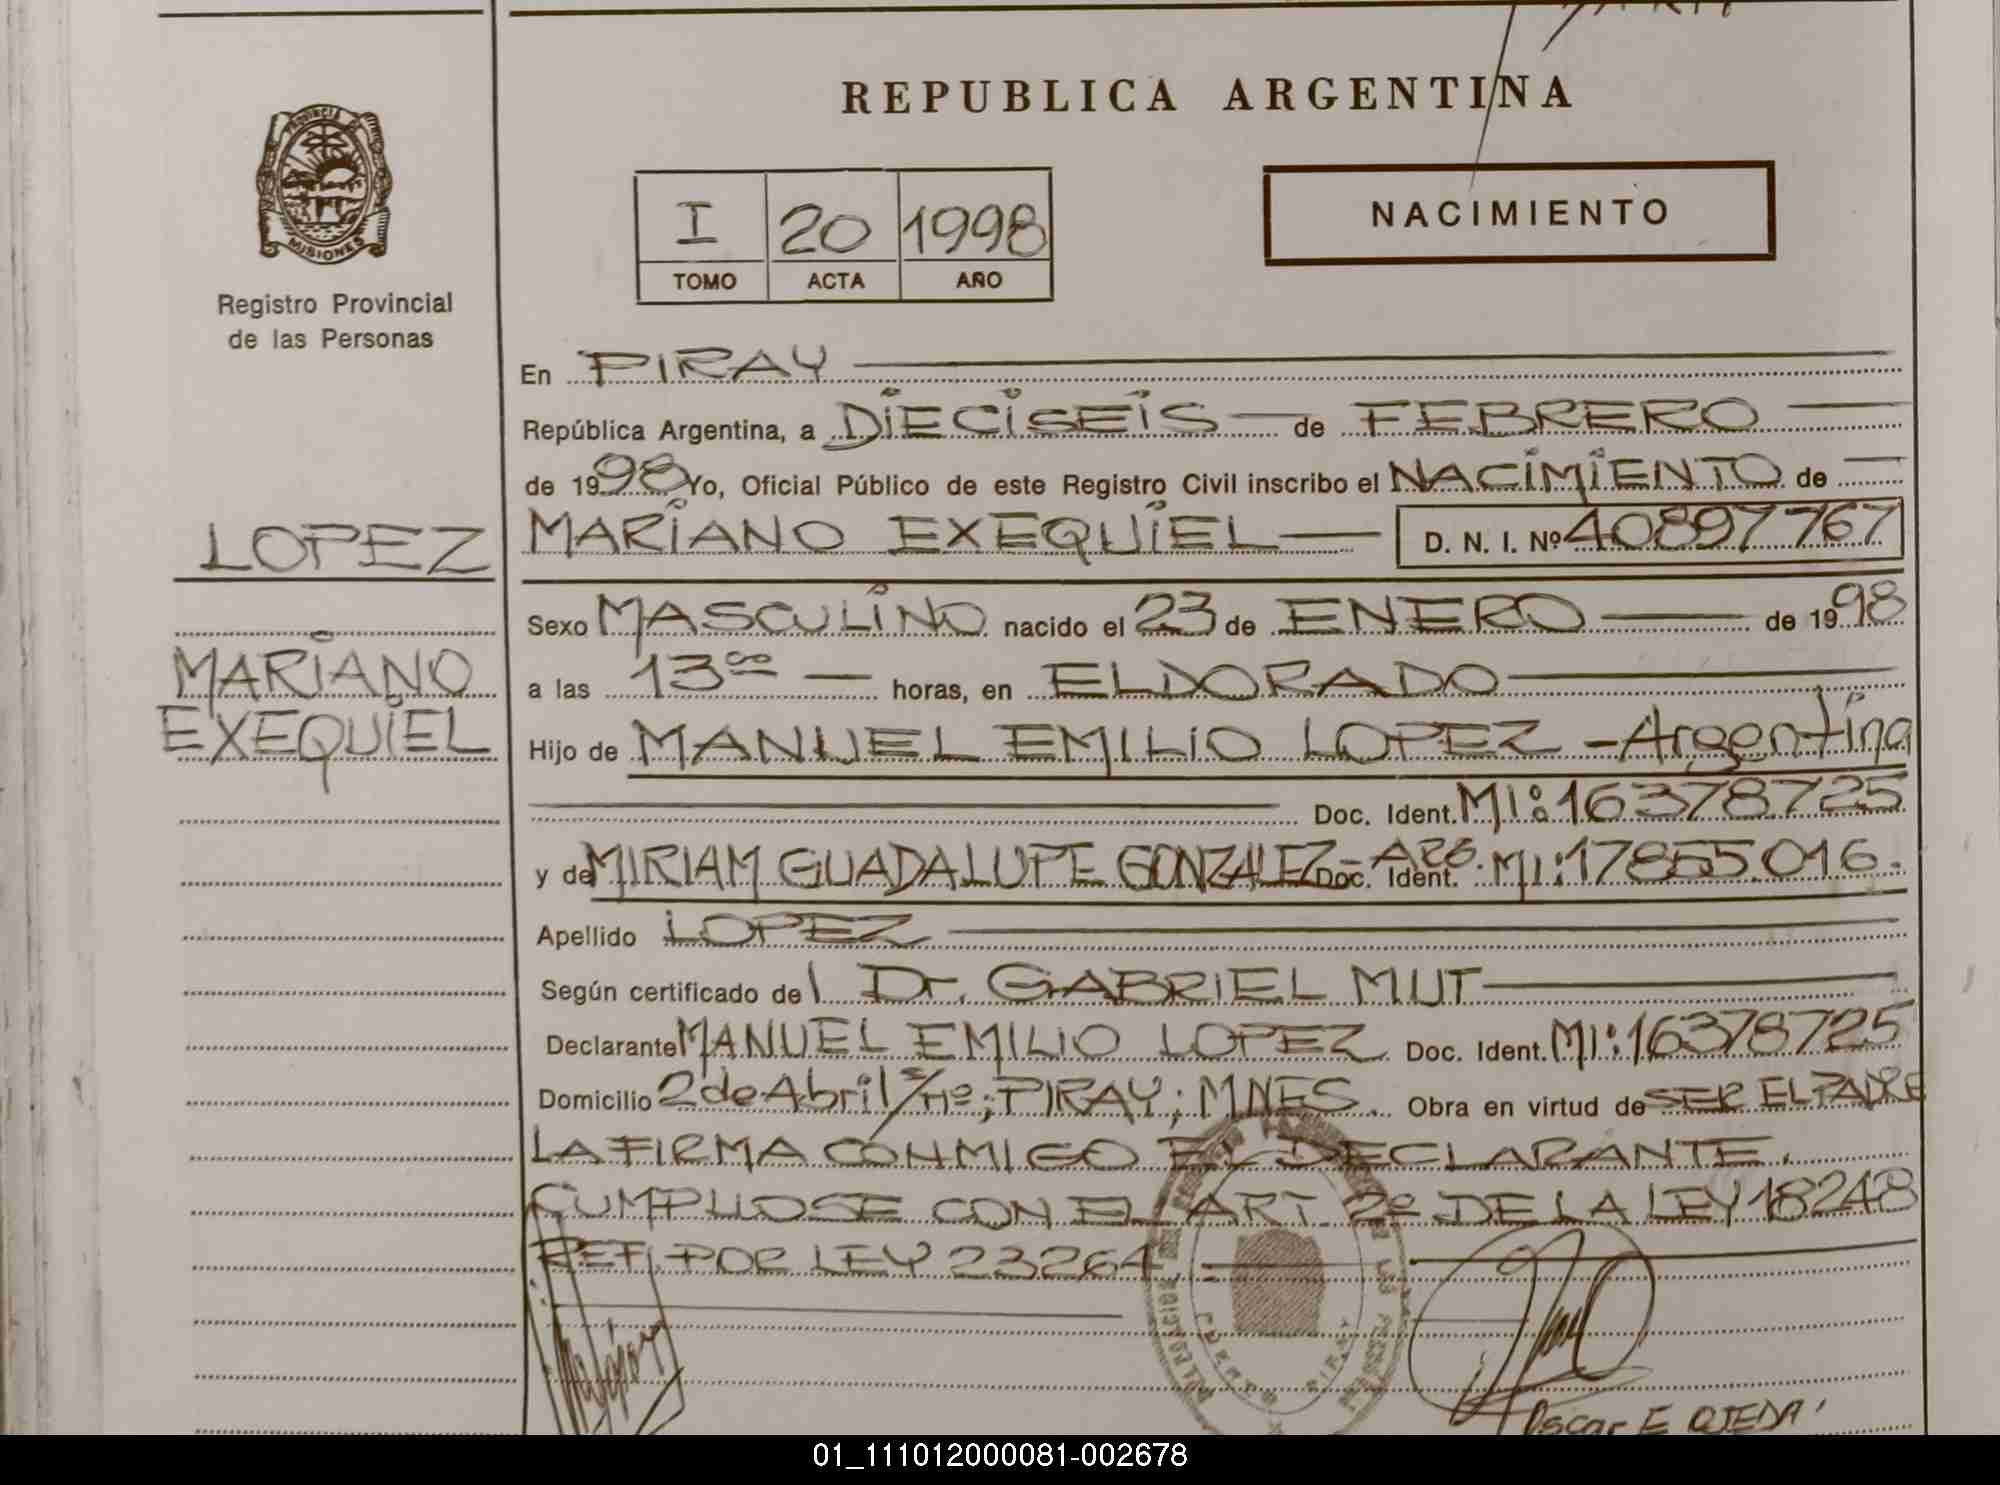 REPUBLICA ARGENTINA
PROVINCIA DE
MISIONES
Registro Provincial
de las Personas
I 20 1998
TOMO ACTA AÑO
NACIMIENTO
En PIRAY
República Argentina, a DIECISEIS de FEBRERO
de 1998 Yo, Oficial Público de este Registro Civil inscribo el NACIMIENTO de
LOPEZ
MARIANO EXEQUIEL D. N. I. Nº 40897767
Sexo MASCULINO nacido el 23 de ENERO de 1998
MARIANO
EXEQUIEL
a las 13°° horas, en ELDORADO
Hijo de MANUEL EMILIO LOPEZ - Argentina
Doc. Ident. MI: 16378725
y de MIRIAM GUADALUPE GONZALEZ - ARG. Doc. Ident. MI: 17855.016.
Apellido LOPEZ
Según certificado del Dr. GABRIEL MUT
Declarante MANUEL EMILIO LOPEZ Doc. Ident. MI: 16378725
Domicilio 2 de Abril s/nº; PIRAY; MNES. Obra en virtud de SER EL PADRE
LA FIRMA CONMIGO EL DECLARANTE.
CUMPLIOSE CON EL ART. 2º DE LA LEY 18248
REF. POR LEY 23264
Oscar E OJEDA
01_111012000081-002678